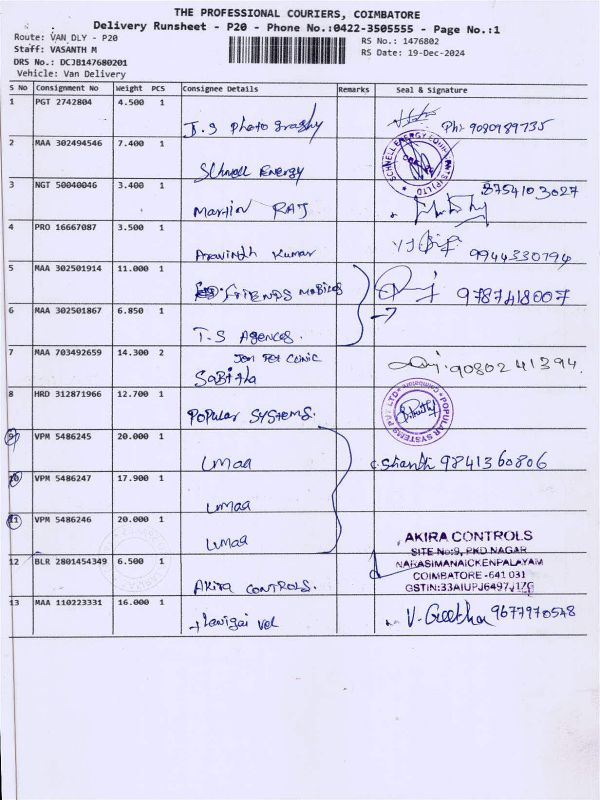 THE PROFESSIONAL COURIERS, COIMBATORE
Delivery Runsheet - P20 - Phone No.:0422-3505555 - Page No.:1
Route: VAN DLY - P20 RS No.: 1476802
Staff: VASANTH M RS Date: 19-Dec-2024
DRS No.: DCJB147680201
Vehicle: Van Delivery
S No Consignment No Weight PCS Consignee Details Remarks Seal & Signature
1 PGT 2742804 4.500 1
J.S Photography Ph: 9080989735
2 MAA 302494546 7.400 1
Schnell Energy SCHNELL ENERGY
3 NGT 50040046 3.400 1 8754103027
Martin RAJ
4 PRO 16667087 3.500 1
Aravindh Kumar 9944330794
5 MAA 302501914 11.000 1
FRIENDS MOBILES 9787418007
6 MAA 302501867 6.850 1
T.S Agences.
7 MAA 703492659 14.300 2 PET CLINIC 9080241394.
Sabitha
8 HRD 312871966 12.700 1
Popular Systems. POPULAR SYSTEMS PVT LTD Coimbatore
9 VPM 5486245 20.000 1
Umaa Shanthi 9841360806
10 VPM 5486247 17.900 1
Umaa
11 VPM 5486246 20.000 1
Umaa
AKIRA CONTROLS
SITE No:9, PKD NAGAR
12 BLR 2801454349 6.500 1 NARASIMANAICKENPALAYAM
COIMBATORE - 641 031
Akira CONTROLS. GSTIN:33AIUPJ6497
13 MAA 110223331 16.000 1
vel V. Geetha 9677970548